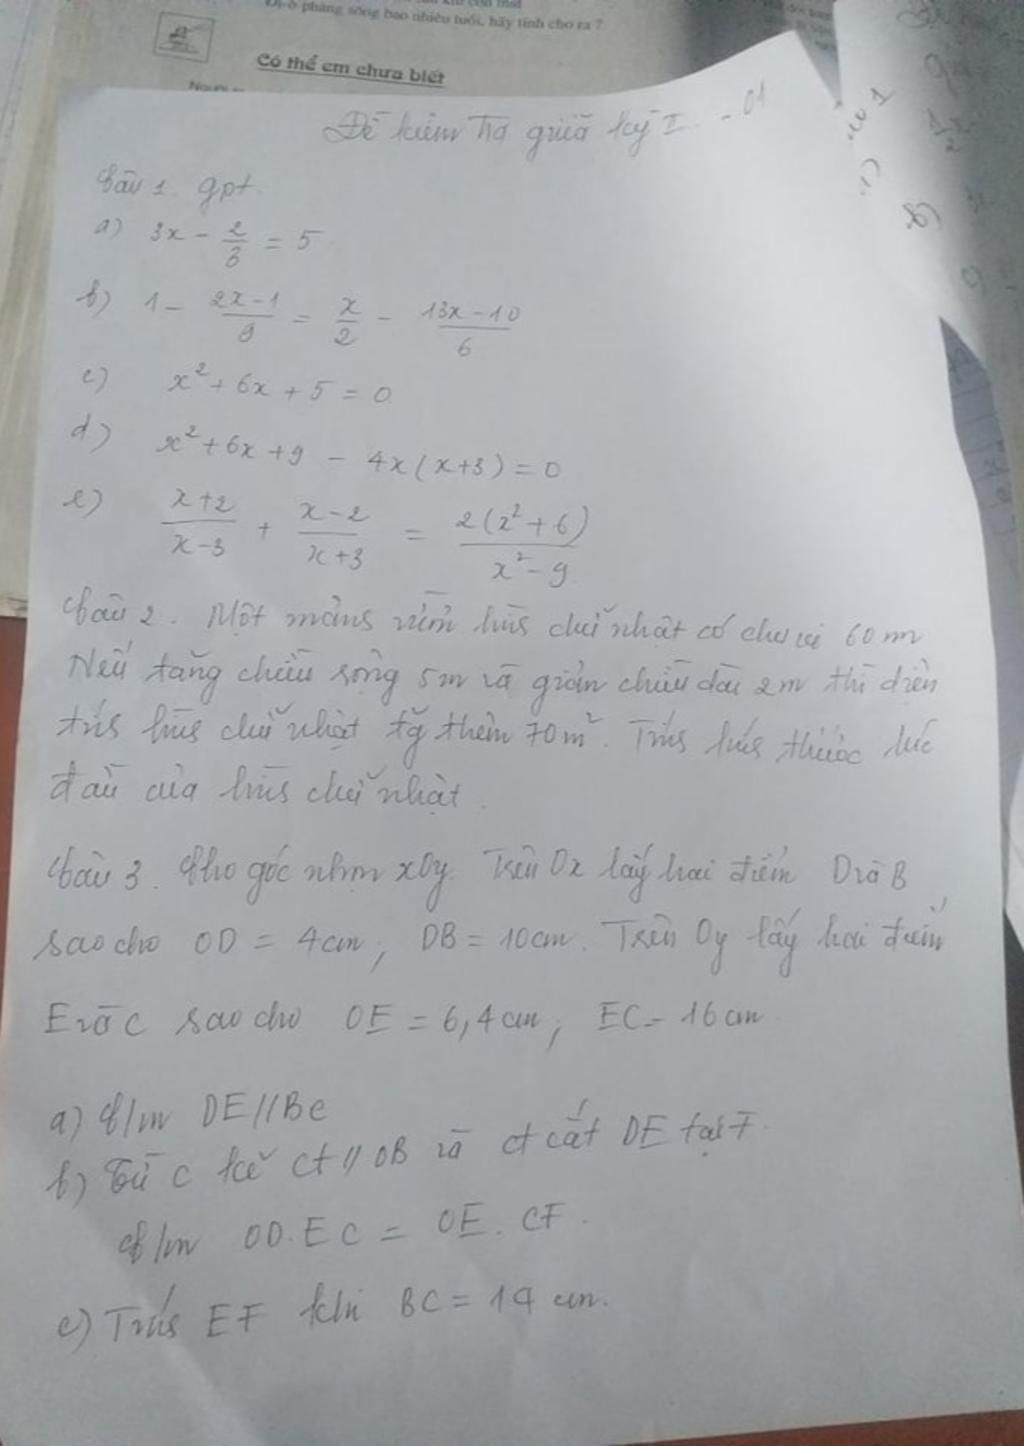 phàng sống bao nhiêu tuổi, hãy tính cho ra ?
Có thể em chưa biết
Đề kiểm tra giữa kỳ I - 01
Câu 1. gpt.
a) 3x - 2/3 = 5
b) 1 - (2x-1)/9 = x/2 - (13x-10)/6
c) x² + 6x + 5 = 0
d) x² + 6x + 9 - 4x(x+3) = 0
e) (x+2)/(x-3) + (x-2)/(x+3) = 2(x²+6)/(x²-9)
Câu 2. Một mảnh vườn hình chữ nhật có chu vi 60 m
Nếu tăng chiều rộng 5m và giảm chiều dài 2m thì diện
tích hình chữ nhật tg thêm 70m². Tính kích thước lúc
đầu của hình chữ nhật.
Câu 3. Cho góc nhọn xOy. Trên Ox lấy hai điểm D và B
sao cho OD = 4cm; DB = 10cm. Trên Oy lấy hai điểm
E và C sao cho OE = 6,4cm; EC = 16cm
a) C/m DE//BC
b) Từ C kẻ Ct // OB và Ct cắt DE tại F.
C/m OD.EC = OE.CF.
c) Tính EF khi BC = 14 cm.